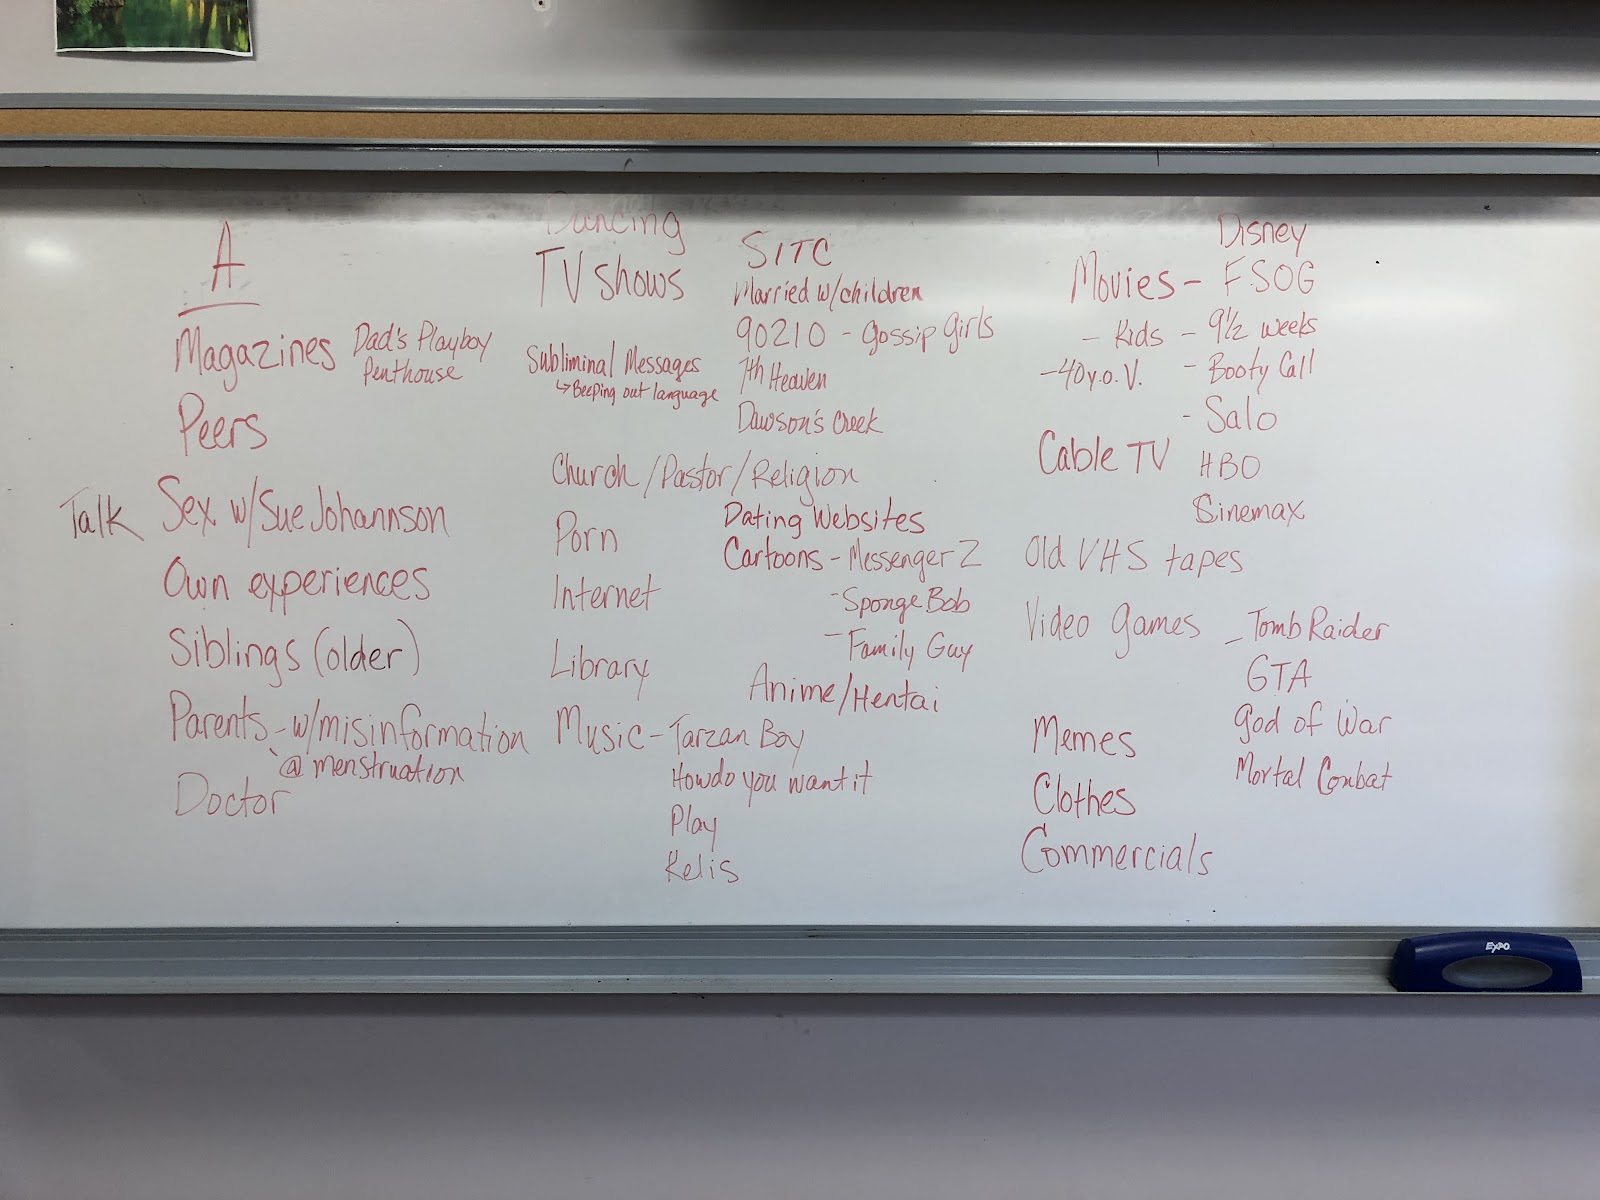 A
Magazines Dad's Playboy
Penthouse
Peers
Talk Sex w/Sue Johannson
Own experiences
Siblings (older)
Parents - w/misinformation
@ menstruation
Doctor
Dancing
TV shows
SITC
Married w/children
90210 - Gossip Girls
7th Heaven
Dawson's Creek
Subliminal Messages
↳ Beeping out language
Church/Pastor/Religion
Porn
Internet
Library
Dating Websites
Cartoons - Messenger Z
- Sponge Bob
- Family Guy
Anime/Hentai
Music - Tarzan Boy
How do you want it
Play
Kelis
Disney
Movies - FSOG
- Kids - 9½ weeks
- 40 y.o. V. - Booty Call
- Salo
Cable TV HBO
Sinemax
Old VHS tapes
Video games - Tomb Raider
GTA
God of War
Mortal Combat
Memes
Clothes
Commercials
EXPO